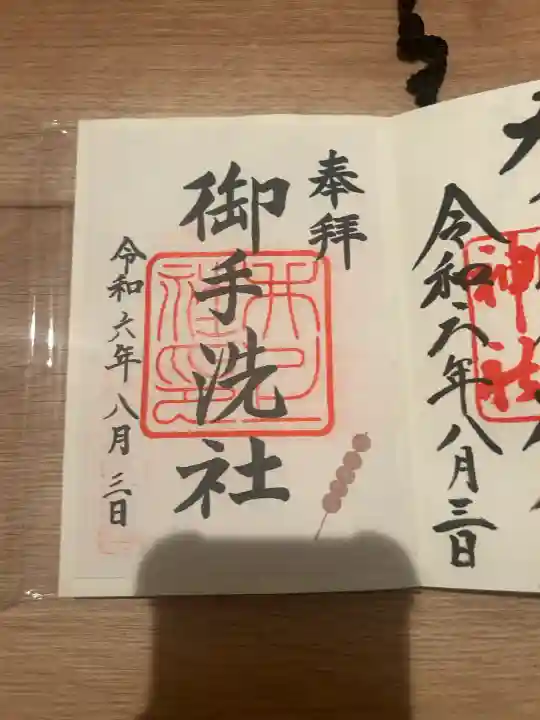 奉拝
御手洗社
令和六年八月三日
神社
令和六年八月三日